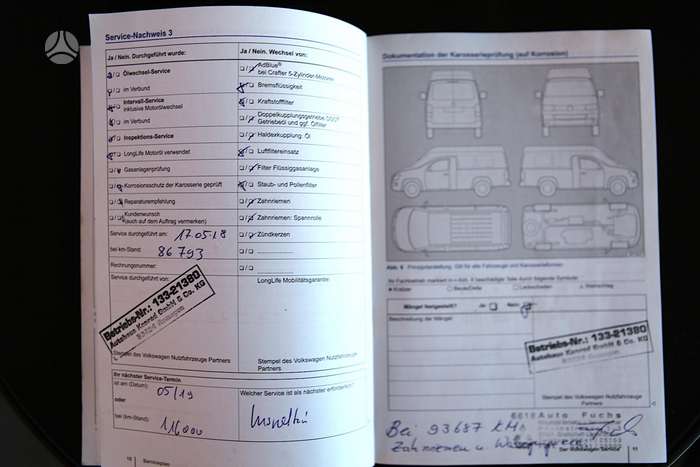 Service-Nachweis 3
Ja / Nein. Durchgeführt wurde:
Ölwechsel-Service
im Verbund
Intervall-Service
inklusive Motorölwechsel
im Verbund
Inspektions-Service
LongLife Motoröl verwendet
Gasanlagenprüfung
Korrosionsschutz der Karosserie geprüft
Reparaturempfehlung
Kundenwunsch
(auch auf dem Auftrag vermerken)
Service durchgeführt am: 17.05.18
bei km-Stand: 86 793
Rechnungsnummer:
Service durchgeführt von:
Betriebs-Nr.: 133-21380
Autohaus Konrad GmbH & Co. KG
Stempel des Volkswagen Nutzfahrzeuge
Partners
Ihr nächster Service-Termin
ist am (Datum): 05/19
oder
bei (km-Stand): 116000
10 Serviceplan
Ja / Nein. Wechsel von:
AdBlue®
bei Crafter 5-Zylinder-Motoren
Bremsflüssigkeit
Kraftstofffilter
Doppelkupplungsgetriebe
Getriebeöl und ggf. Ölfilter
Haldexkupplung: Öl
Luftfiltereinsatz
Filter Flüssiggasanlage
Staub- und Pollenfilter
Zahnriemen
Zahnriemen: Spannrolle
Zündkerzen
LongLife Mobilitätsgarantie:
Stempel des Volkswagen Nutzfahrzeuge
Partners
Welcher Service ist als nächster erforderlich?
Dokumentation der Karosserieprüfung (auf Korrosion)
Abb. 6 Prinzipdarstellung. Gilt für alle Fahrzeuge und Karosserieformen.
Kratzer Beule/Delle Lackschaden Steinschlag
Mängel festgestellt? Ja Nein
Beschreibung der Mängel:
Betriebs-Nr.: 133-21380
Autohaus Konrad GmbH & Co. KG
Stempel des Volkswagen Nutzfahrzeuge
Partners
Auto Fuchs
Bei 93687 KM
Zahnriemen u.
Der Volkswagen Service 11